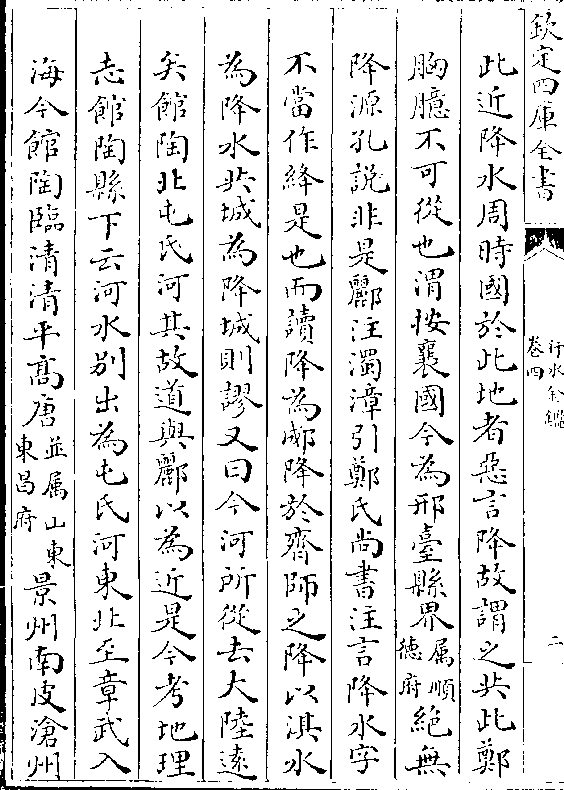 欽定四庫全書
行水金鑑
卷四
二
此近降水周時國於此地者惡言降故謂之共此鄭
胸臆不可從也渭按襄國今為邢臺縣界屬順德府絶無
降源孔說非是酈注濁漳引鄭氏尚書注言降水字
不當作絳是也而讀降為郕降於齊師之降以淇水
為降水共城為降城則謬又曰今河所從去大陸遠
矣館陶北屯氏河其故道與酈以為近是今考地理
志館陶縣下云河水别出為屯氏河東北至章武入
海今館陶臨清清平髙唐並属山東東昌府景州南皮滄州